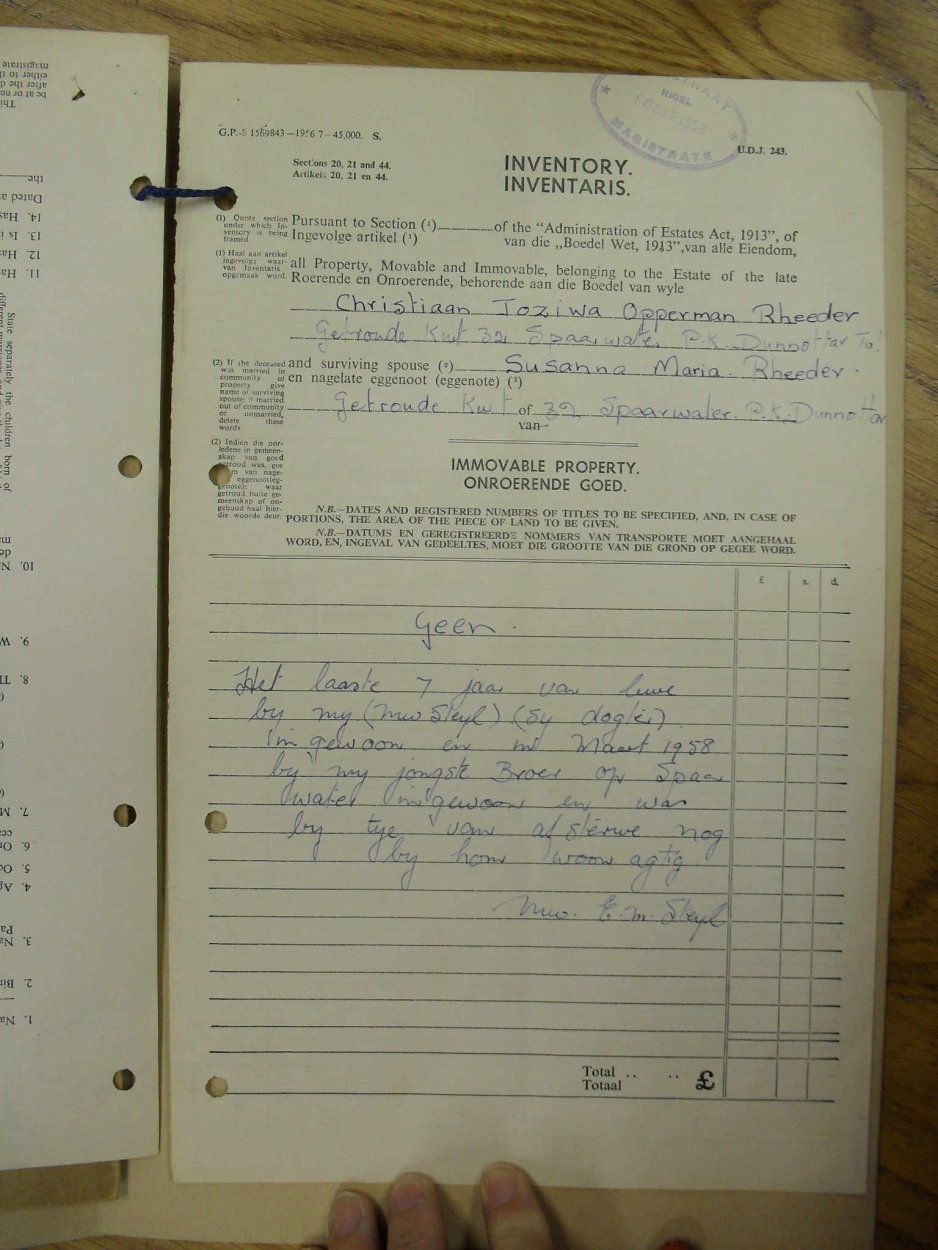 STRAAT
NIGEL
SEP 1958
MAGISTRATE
G.P.-S 1569843—1956 7—45,000. S.
U.D.J. 243.
Sections 20, 21 and 44.
Artikels 20, 21 en 44.
INVENTORY.
INVENTARIS.
(1) Quote section
under which In-
ventory is being
framed.
(1) Haal aan artikel
ingevolge waar-
van Inventaris
opgemaak word.
Pursuant to Section (¹) of the “Administration of Estates Act, 1913”, of
Ingevolge artikel (¹) van die „Boedel Wet, 1913”, van alle Eiendom,
all Property, Movable and Immovable, belonging to the Estate of the late
Roerende en Onroerende, behorende aan die Boedel van wyle
Christiaan Joziwa Opperman Rheeder
Getroude Kwt 32 Spaarwater P.K. Dunnottar
(2) If the deceased
was married in
community of
property give
name of surviving
spouse; if married
out of community
or unmarried,
delete these
words.
and surviving spouse (²) Susanna Maria. Rheeder.
en nagelate eggenoot (eggenote) (²)
Getroude Kwt of 32 Spaarwater. P.K. Dunnottar
van
(2) Indien die oor-
ledene in gemeen-
skap van goed
getroud was, gee
van nage-
eggenoot(eg-
genote): waar
getroud buite ge-
meenskap of on-
gehuud haal hier-
die woorde deur.
IMMOVABLE PROPERTY.
ONROERENDE GOED.
N.B.—DATES AND REGISTERED NUMBERS OF TITLES TO BE SPECIFIED, AND, IN CASE OF
PORTIONS, THE AREA OF THE PIECE OF LAND TO BE GIVEN.
N.B.—DATUMS EN GEREGISTREERDE NOMMERS VAN TRANSPORTE MOET AANGEHAAL
WORD, EN, INGEVAL VAN GEDEELTES, MOET DIE GROOTTE VAN DIE GROND OP GEGEE WORD.
£ s. d.
Geen.
Het laaste 7 jaar van lewe
by my (Mw Steyl) (Sy dogter)
in gewoon en in Maart 1958
by my jongste Broer op Spaar
water in gewoon en was
by tye van af sterwe nog
by hom woon agtig
Mw. E.M. Steyl
Total .. .. £
Totaal
magistrate
either to th
after the d
be at or ne
Thi
the
Dated a
14. Has
13. Is i
12. Has
11. Has
State separately the children born of
10. N
9. W
8. Tl
7. M
6. Or
5. Oc
4. Ag
3. Na
2. Bir
1. Na